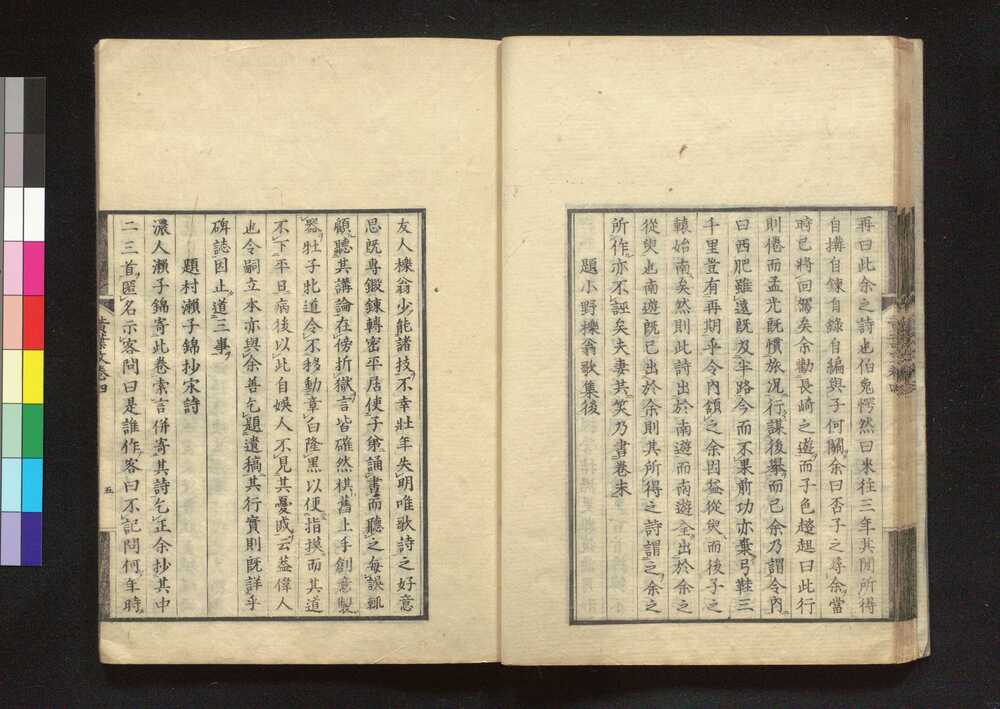 再曰此余之詩也伯兎愕然曰來往三年其間所得
自搆自錄自編與子何關余曰否子之尋余當
時已將回駕矣余勸長崎之遊而子色趑趄曰此行
則倦而孟光既慣旅况行謀後擧而已余乃謂令內
曰西肥雖遠既及半路今而不果前功亦棄弓鞋三
千里豈有再期乎令內頷之余因益從臾而後子之
轅始南矣然則此詩出於南遊而南遊全出於余之
從臾也南遊既已出於余則其所得之詩謂之余之
所作亦不誣矣夫妻其笑乃書卷末
題小野櫟翁歌集後
友人櫟翁少能諸技不幸壯年失明唯歌詩之好意
思既專鍛鍊轉密平居使子弟誦書而聽之每誤輒
顧聽其講論在傍折獄言皆確然棋舊上手創意製
器牡子牝道令不移動章白隆黑以便指摸而其道
不下平日病後以此自娛人不見其憂戚云蓋偉人
也令嗣立本亦與余善乞題遺稿其行實則既詳乎
碑誌因止道三事
題村瀨子錦抄宋詩
濃人瀨子錦寄此卷索言併寄其詩乞正余抄其中
二三首匿名示客問曰是誰作客曰不記問何年時
黃葉文卷四
五